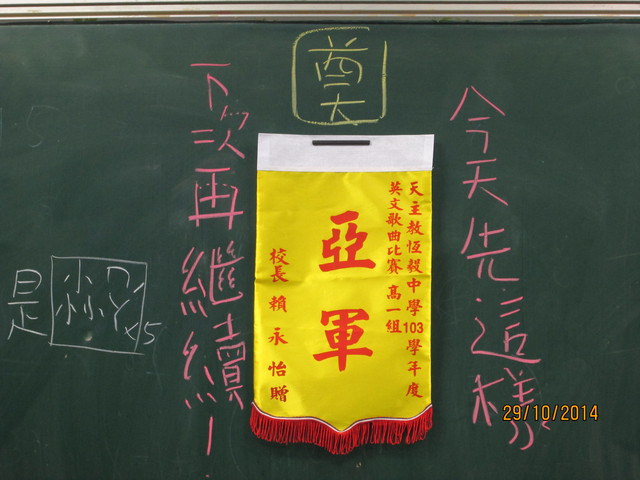 奠
今天先這樣
天主教恆毅中學103學年度
英文歌曲比賽 高一組
亞軍
校長 賴永怡 贈
下次再繼續!
是
x5
29/10/2014